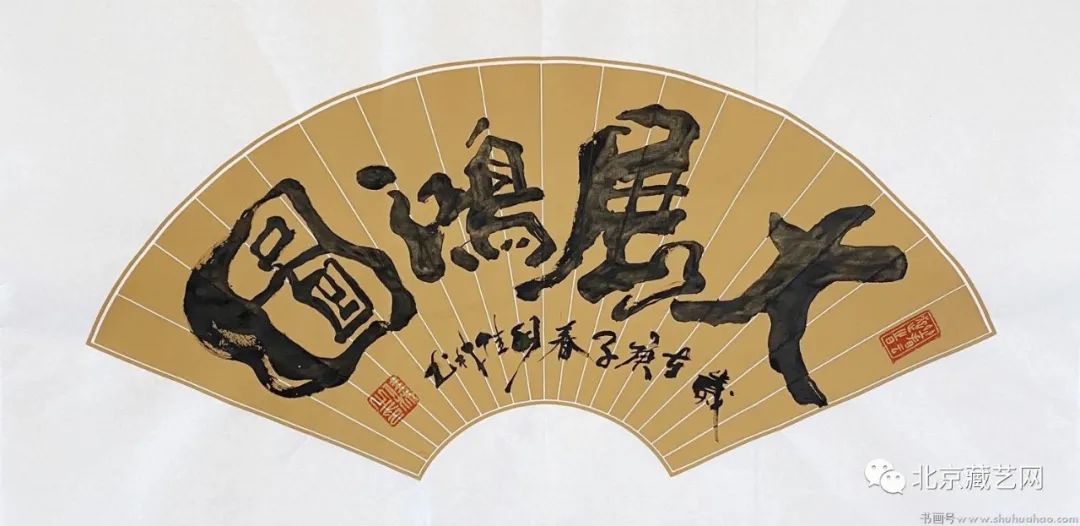 大展鸿圖
歲在庚子春
北京藏艺网
书画号www.shuhuahao.com